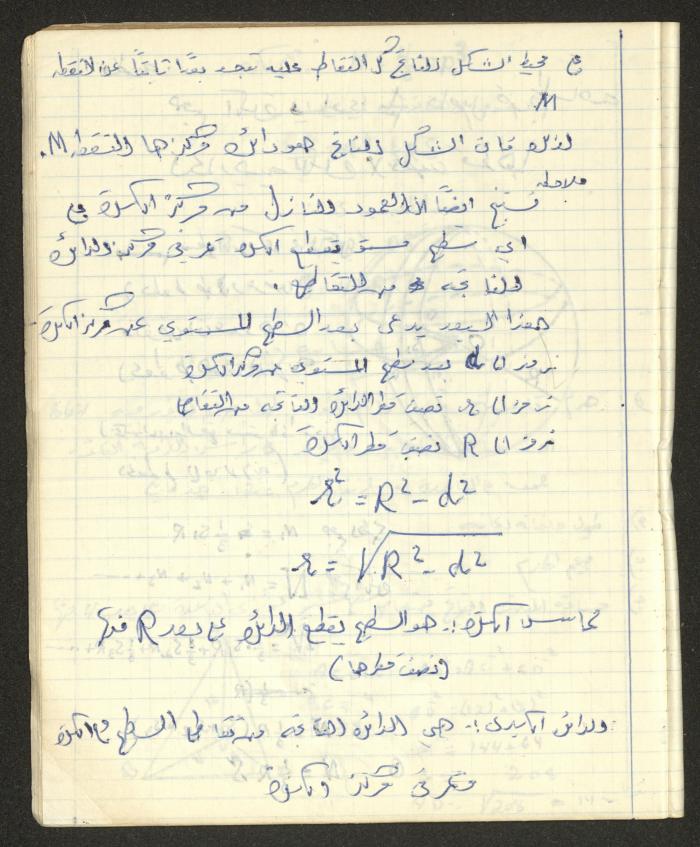 محيط الشكل الناتج كل النقاط عليه تبعد بعدًا ثابتًا عن النقطه
M
لذلك فان الشكل الناتج هو دائره مركزها النقطه M.
ملاحظه
ينتج ايضًا ان العمود النازل من مركز الكره على
اي سطح مستو يقطع الكره تمر في مركز الدائره
الناتجه من التقاطع.
هذا البعد يدعى بعد السطح المستوي عن مركز الكره
نرمز لـ d بعد سطح المستوي عن مركز الكره
نرمز لـ r نصف قطر الدائره الناتجه من التقاطع
نرمز لـ R نصف قطر الكره
r² = R² - d²
r = √R² - d²
مماس الكره :- هو السطح يقطع الدائره على بعد R منها
(نصف قطرها)
الدائره الكبرى :- هي الدائره الناتجه من تقاطع السطح مع الكره
وتمر في مركز الكره